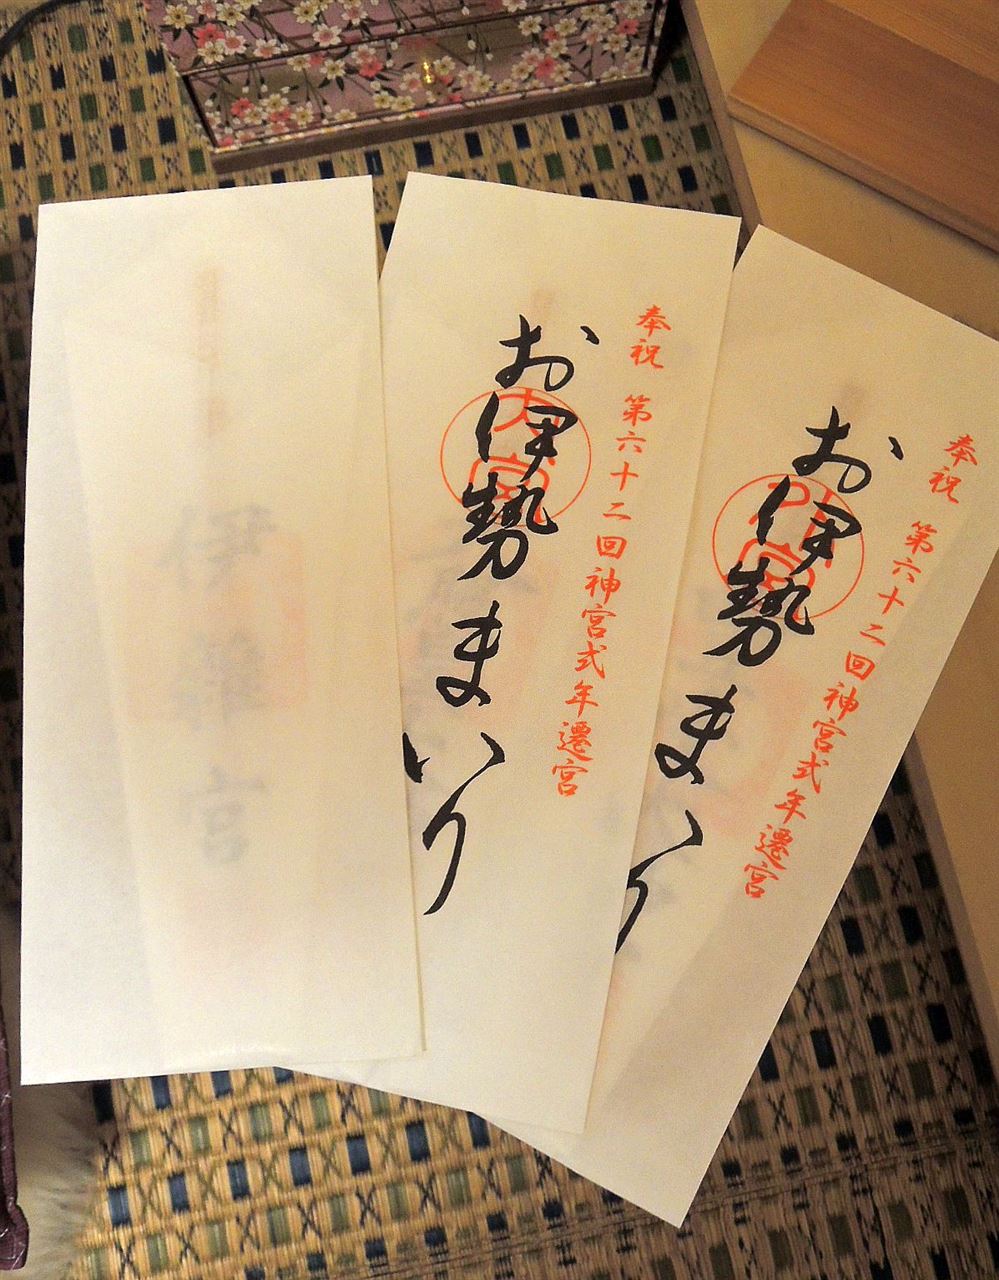 奉祝 第六十二回神宮式年遷宮
お伊勢まいり
外宮
奉祝 第六十二回神宮式年遷宮
お伊勢まいり
内宮
伊雜宮